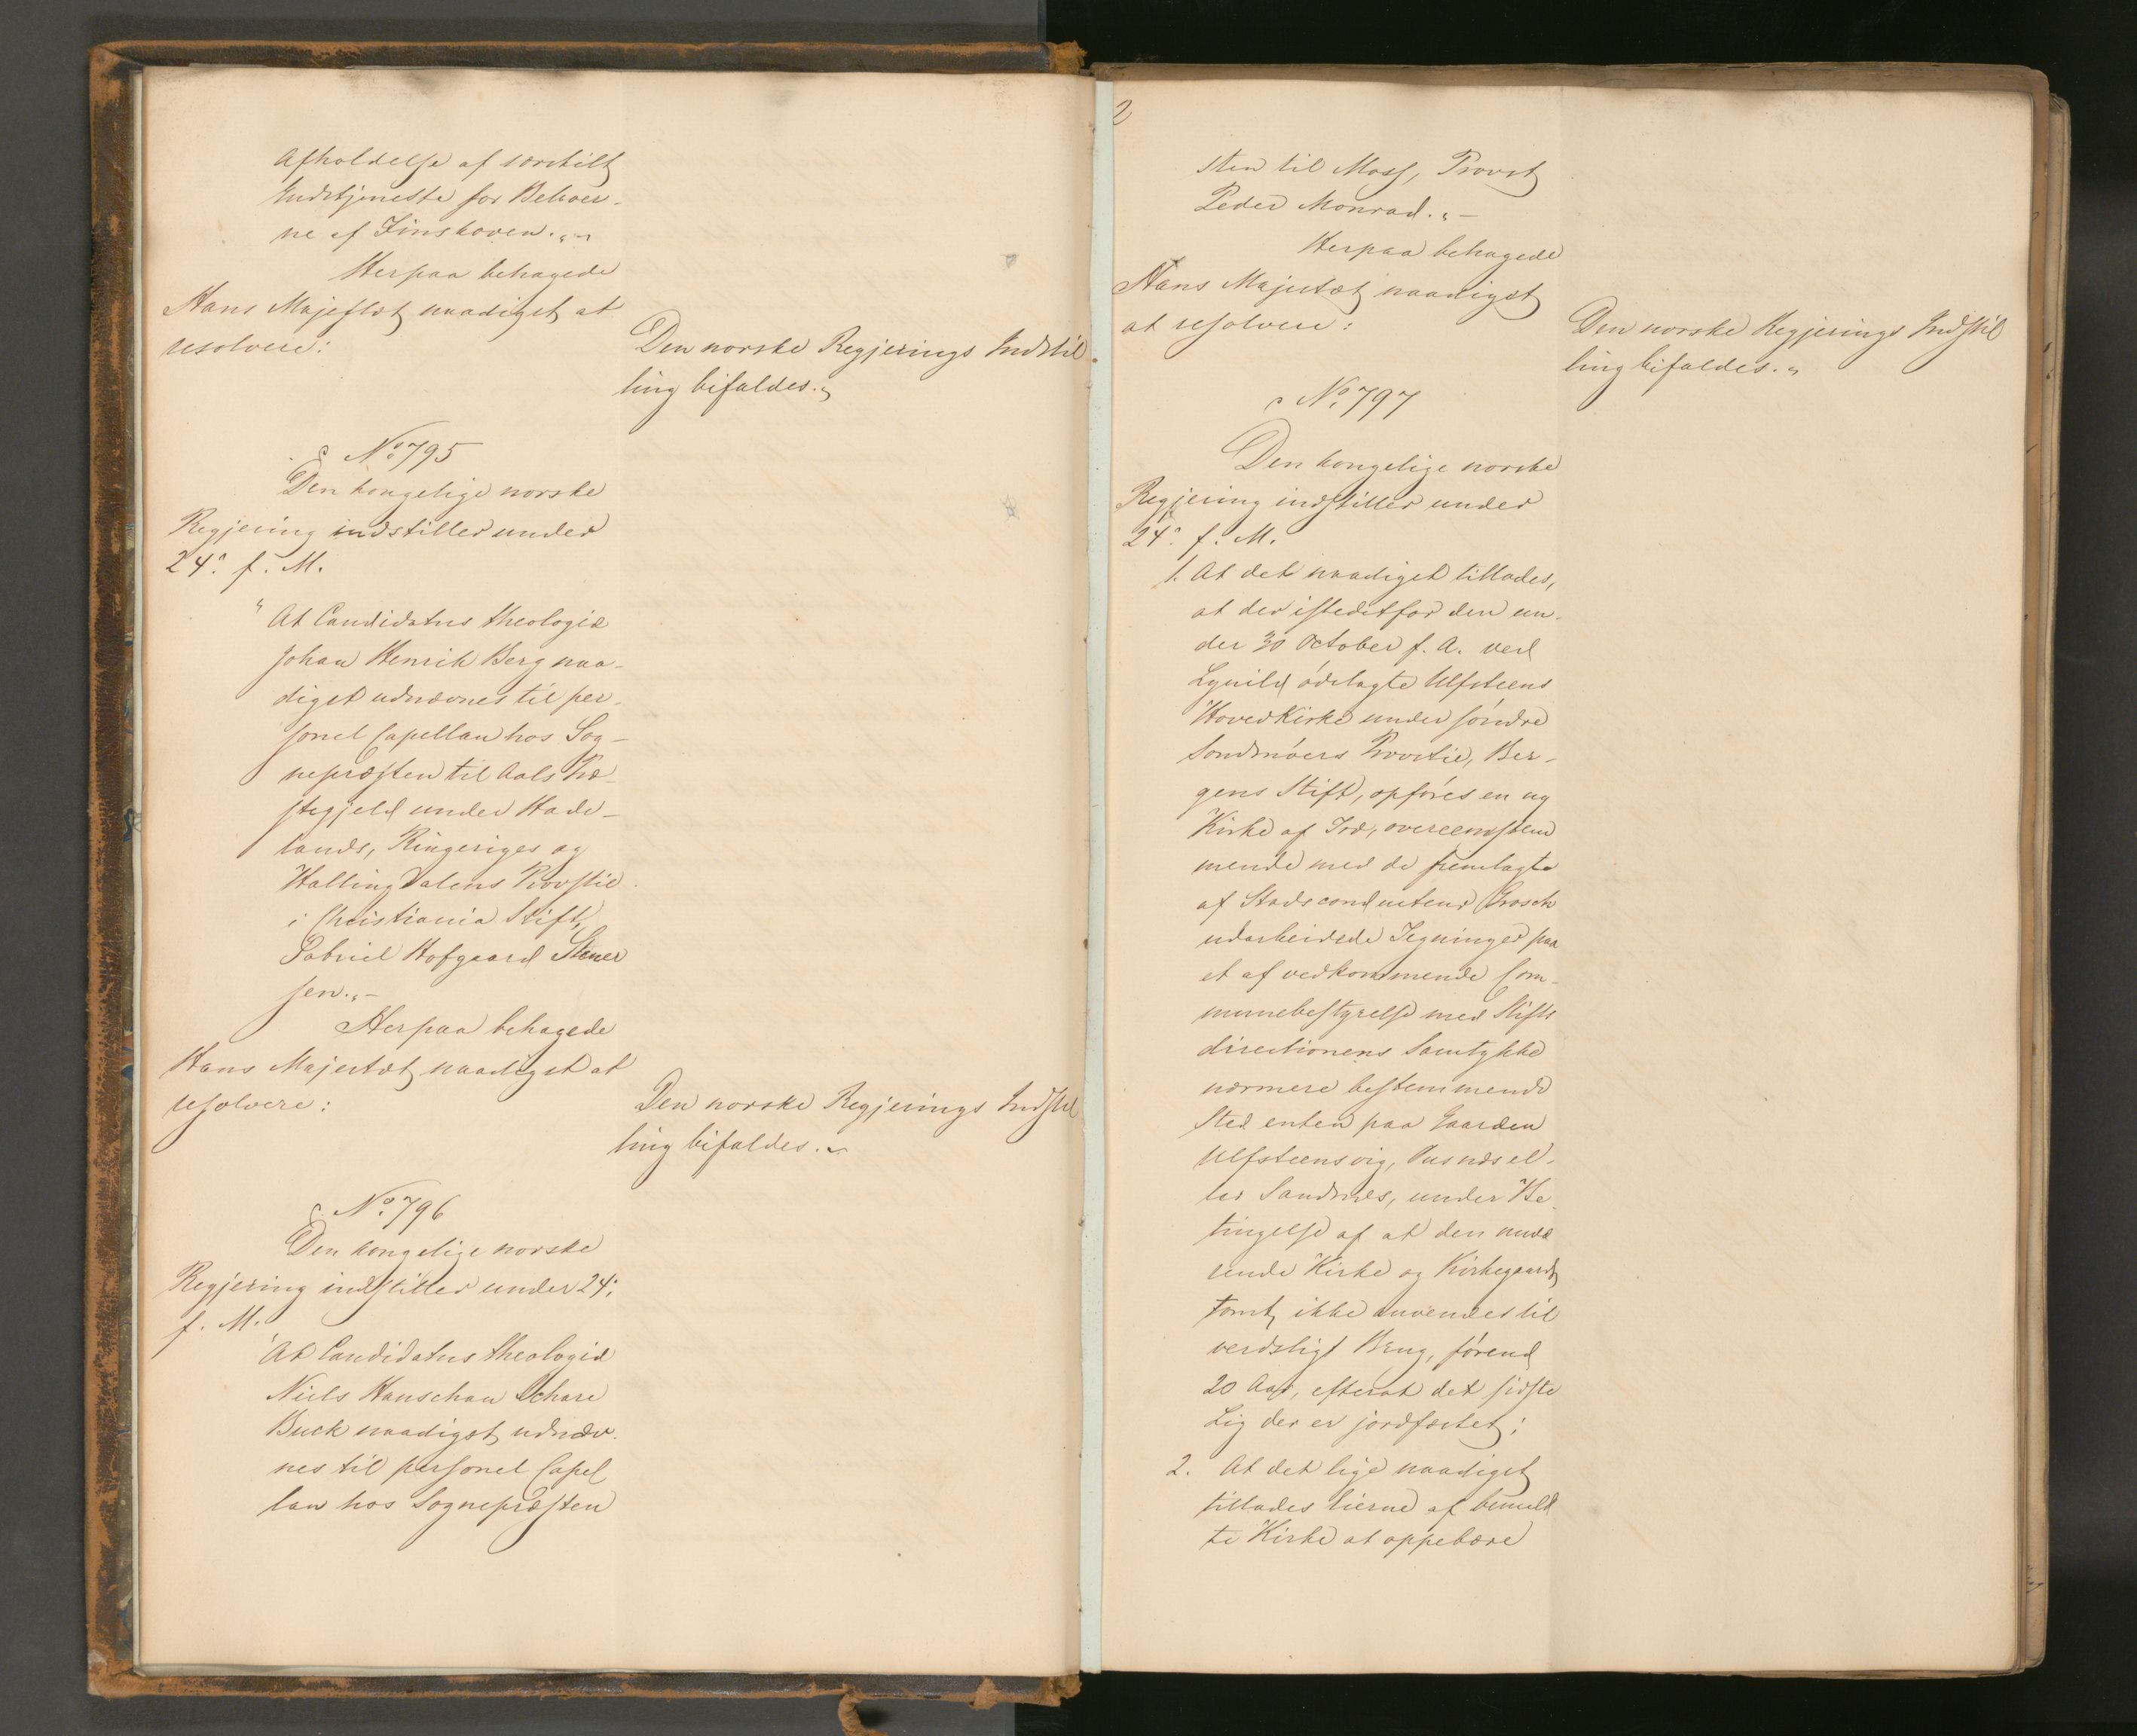 Afholdelse af særskilt
Gudstjeneste for Beboer-
ne af Finskoven.„-
Herpaa behagede
Hans Majestæt naadigst at
resolvere:
Den norske Regjerings Indstil
ling bifaldes.„
No 795
Den kongelige norske
Regjering indstiller under
24. f. M.
"At Candidatus theologiæ
Johan Henrik Berg naa-
digst udnævnes til per-
sonel Capellan hos Sog-
nepræsten til Aals Præ-
stegjeld under Hade-
lands, Ringeriges og
Hallingdalens Provstie
i Christiania Stift,
Gabriel Hofgaard Stener
sen.„-
Herpaa behagede
Hans Majestæt naadigst at
resolvere:
Den norske Regjerings Indstil
ling bifaldes.„
No 796
Den kongelige norske
Regjering indstiller under 24.
f. M.
"At Candidatus theologiæ
Niels Schare
Buck naadigst udnæv-
nes til personel Capel
lan hos Sognepræsten
2
sten til Moss, Provst
Peder Monrad.„-
Herpaa behagede
Hans Majestæt naadigst
at resolvere:
Den norske Regjerings Indstil
ling bifaldes.„
No 797
Den kongelige norske
Regjering indstiller under
24. f. M.
1. At det naadigst tillades,
at der istedetfor den un-
der October f. A. ved
Lynild ødelagte Ulfsteens
Hovedkirke under søndre
Søndmøers Provstie, Ber-
gens Stift, opføres en ny
Kirke af Træ, overeensstem
mende med de fremlagte
af Stadsconducteur Grosch
udarbeidede Tegninger paa
et af vedkommende Com-
munebestyrelse med Stifts
directionens Samtykke
nærmere bestemmende
Sted enten paa Gaarden
Ulfsteensvig, el-
ler Sandnes, under Be-
tingelse af at den nuvæ
rende Kirke og Kirkegaards
tomt, ikke anvendes til
verdsligt Brug, førend
20 Aar, efterat det sidste
Lig der er jordfæstet;
2. At det lige naadigst
tillades Eierne af bemeld
te Kirke at oppebære